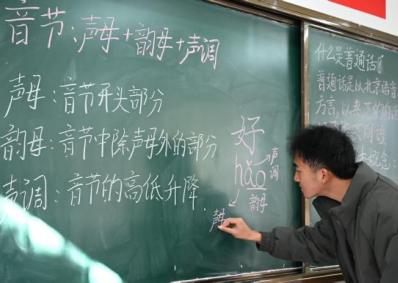 音节：声母+韵母+声调
声母：音节开头部分
韵母：音节中除声母外的部分
声调：音节的高低升降.
好
hǎo
声调
韵母
声
什么是普通话
普通话是以北京语音
方言，以